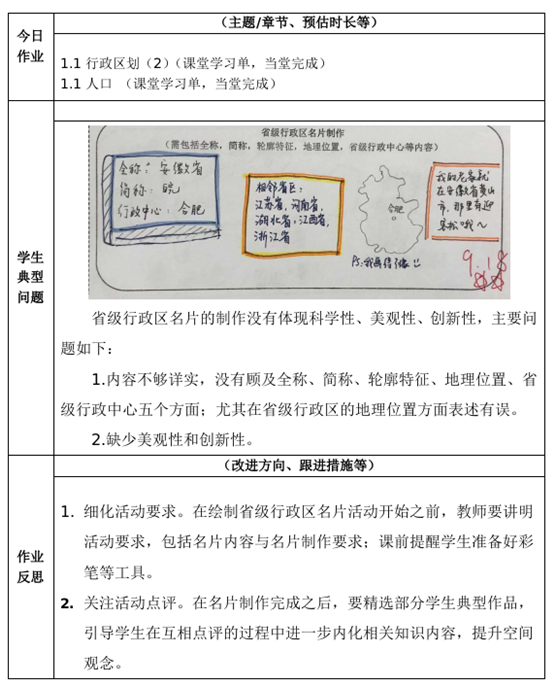 今日
作业
（主题/章节、预估时长等）
1.1 行政区划（2）（课堂学习单，当堂完成）
1.1 人口 （课堂学习单，当堂完成）
学生
典型
问题
省级行政区名片制作
（需包括全称，简称，轮廓特征，地理位置，省级行政中心等内容）
全称：安徽省
简称：皖
行政中心：合肥
相邻省区：
江苏省，河南省，
湖北省，江西省，
浙江省
合肥
我的老家就
在安徽省黄山
市，那里有迎
客松哦～
9.18
省级行政区名片的制作没有体现科学性、美观性、创新性，主要问
题如下：
1.内容不够详实，没有顾及全称、简称、轮廓特征、地理位置、省
级行政中心五个方面；尤其在省级行政区的地理位置方面表述有误。
2.缺少美观性和创新性。
作业
反思
（改进方向、跟进措施等）
1. 细化活动要求。在绘制省级行政区名片活动开始之前，教师要讲明
活动要求，包括名片内容与名片制作要求；课前提醒学生准备好彩
笔等工具。
2. 关注活动点评。在名片制作完成之后，要精选部分学生典型作品，
引导学生在互相点评的过程中进一步内化相关知识内容，提升空间
观念。